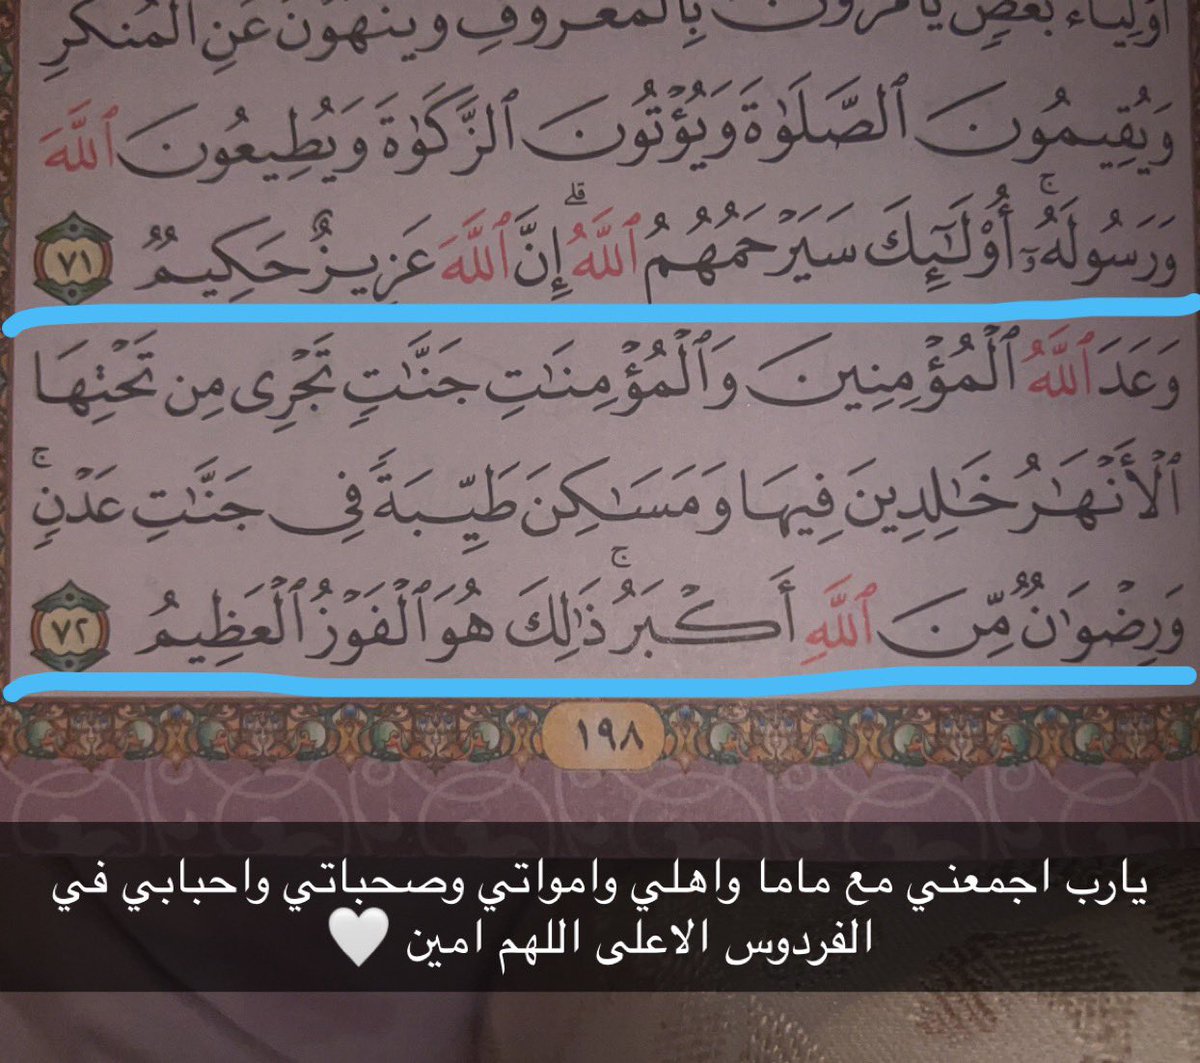 أَوْلِيَاءُ بَعْضٍ يَأْمُرُونَ بِالْمَعْرُوفِ وَيَنْهَوْنَ عَنِ الْمُنكَرِ
وَيُقِيمُونَ ٱلصَّلَوٰةَ وَيُؤْتُونَ ٱلزَّكَوٰةَ وَيُطِيعُونَ ٱللَّهَ
وَرَسُولَهُۥٓ ۚ أُو۟لَـٰٓئِكَ سَيَرْحَمُهُمُ ٱللَّهُ ۗ إِنَّ ٱللَّهَ عَزِيزٌ حَكِيمٌ ٧١
وَعَدَ ٱللَّهُ ٱلْمُؤْمِنِينَ وَٱلْمُؤْمِنَـٰتِ جَنَّـٰتٍ تَجْرِى مِن تَحْتِهَا
ٱلْأَنْهَـٰرُ خَـٰلِدِينَ فِيهَا وَمَسَـٰكِنَ طَيِّبَةً فِى جَنَّـٰتِ عَدْنٍ ۚ
وَرِضْوَٰنٌ مِّنَ ٱللَّهِ أَكْبَرُ ۚ ذَٰلِكَ هُوَ ٱلْفَوْزُ ٱلْعَظِيمُ ٧٢
١٩٨
يارب اجمعني مع ماما واهلي وامواتي وصحباتي واحبابي في
الفردوس الاعلى اللهم امين 🤍